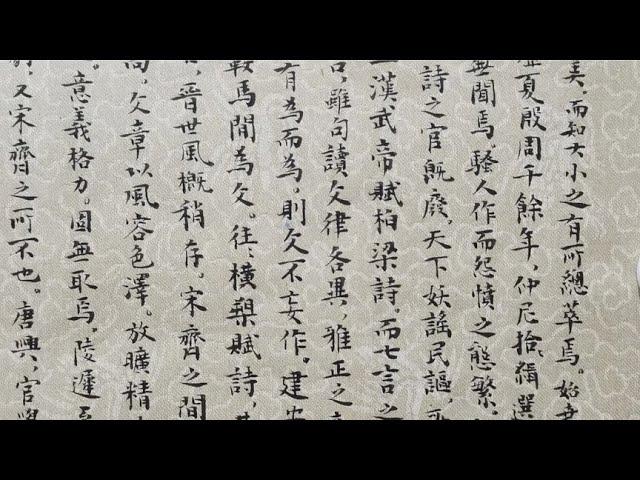 美、而知大小之有所總萃焉。始堯
虞夏殷周千餘年，仲尼拾緝選
無聞焉。騷人作而怨憤之態繁。
詩之官既廢，天下妖謠民謳，
漢武帝賦柏梁詩。而七言之
雖句讀文律各異，雅正之
有為而為。則文不妄作。建安
鞍馬間為文。往〻橫槊賦詩，
晉世風概稍存。宋齊之間
文章以風容色澤。放曠精
。意義格力。固無取焉。陵遲
，又宋齊之所不也。唐興，官學